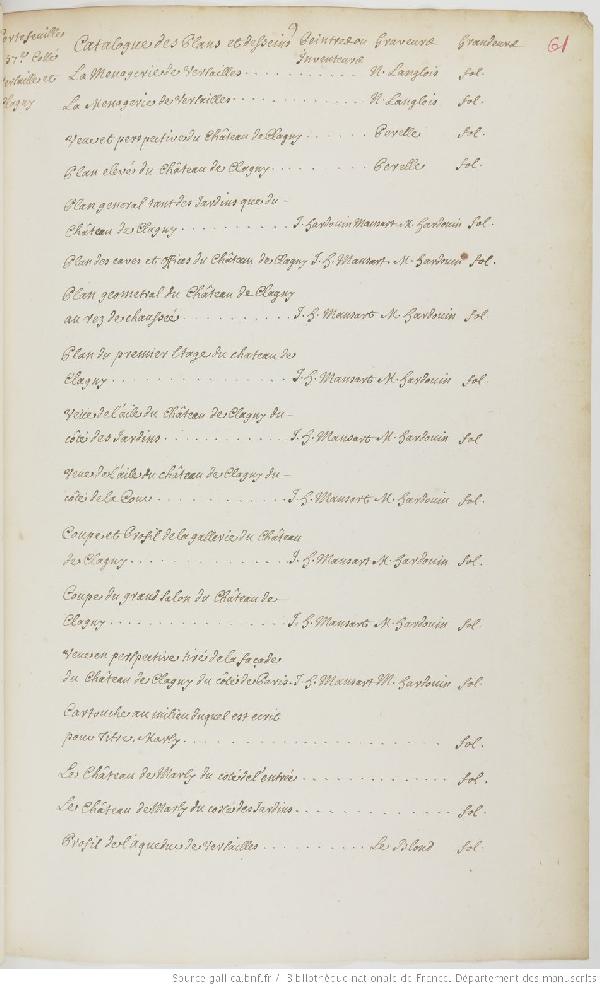 Portefeuille
37.e Cotté
Versailles et
Clagny
61
Catalogue des Plans et desseins Peintres ou Graveurs Grandeurs
Inventeurs
La Menagerie de Versailles N. Langlois fol.
La Menagerie de Versailles N. Langlois fol.
Veue et perspective du Château de Clagny Perelle fol.
Plan elevé du Château de Clagny Perelle fol.
Plan general tant des Jardins que du
Château de Clagny J. Hardouin Mansart M. Hardouin fol.
Plan des caves et offices du Château de Clagny J. H. Mansart M. Hardouin fol.
Plan geometral du Château de Clagny
au rez de chaussée J. H. Mansart M. Hardouin fol.
Plan du premier Etage du chateau de
Clagny J. H. Mansart M. Hardouin fol.
Veue de l'aile du Château de Clagny du
côté des Jardins J. H. Mansart M. Hardouin fol.
Veue de l'aile du château de Clagny du
côté de la Cour J. H. Mansart M. Hardouin fol.
Coupe et Profil de la gallerie du Château
de Clagny J. H. Mansart M. Hardouin fol.
Coupe du grand salon du Château de
Clagny J. H. Mansart M. Hardouin fol.
Veue en perspective tiré de la façade
du Château de Clagny du côté de Paris J. H. Mansart M. Hardouin fol.
Cartouche au milieu duquel est ecrit
pour Titre Marly fol.
Le Château de Marly du coté de l'entrée fol.
Le Château de Marly du costé des Jardins fol.
Profil de l'aqueduc de Versailles Le Blond fol.
Source gallica.bnf.fr / Bibliothèque nationale de France. Département des manuscrits